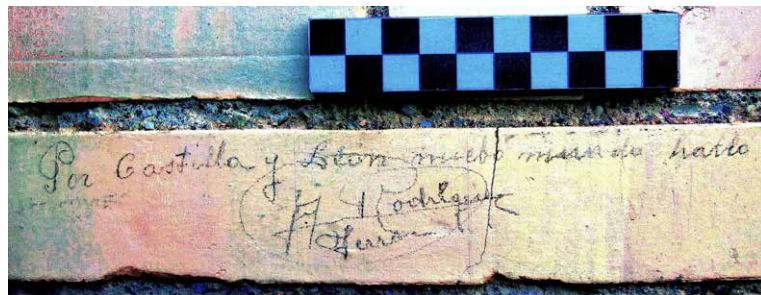 Por Castilla y León nuebo mundo hallo
A. Rodrigu
Herra